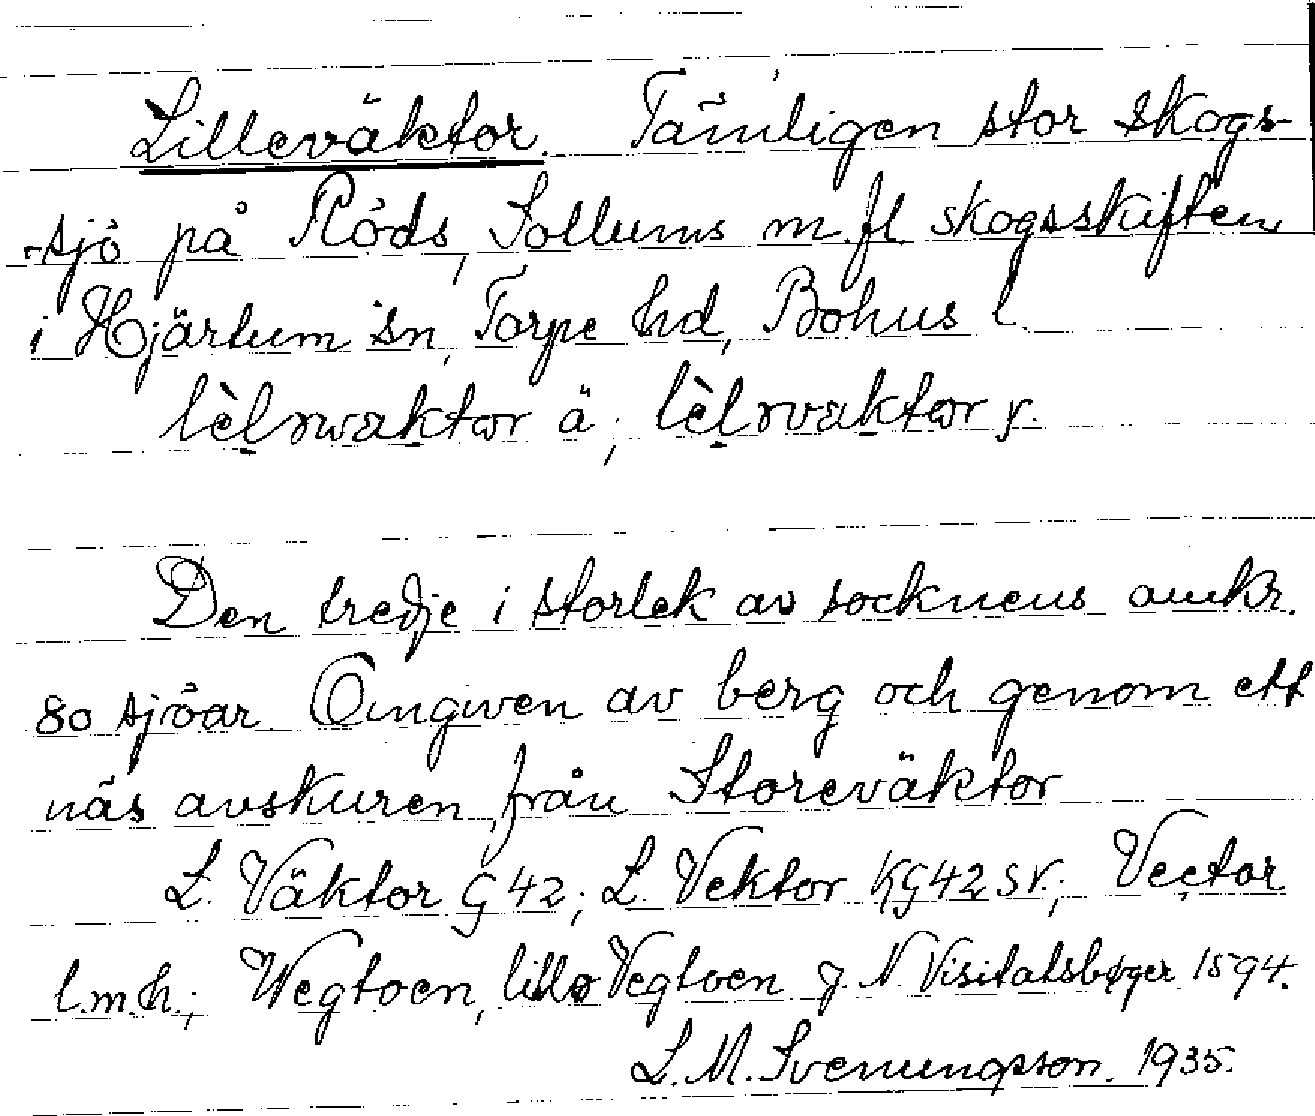 Lilleväktor. Tämligen stor skogs-
-sjö på Röds, Sollums m. fl. skogsskiften
i Hjärtum sn, Torpe hd, Bohus l.
ä; y.
Den tredje i storlek av socknens omkr.
80 sjöar. Omgiven av berg och genom ett
näs avskuren från Storeväktor
L. Väktor G 42; L. Vektor KG42SV.; Vector
l.m.h.; Wegtoen, lille Vegtoen J. N Visitatsbøger 1594.
L. M. Svenungsson. 1935.